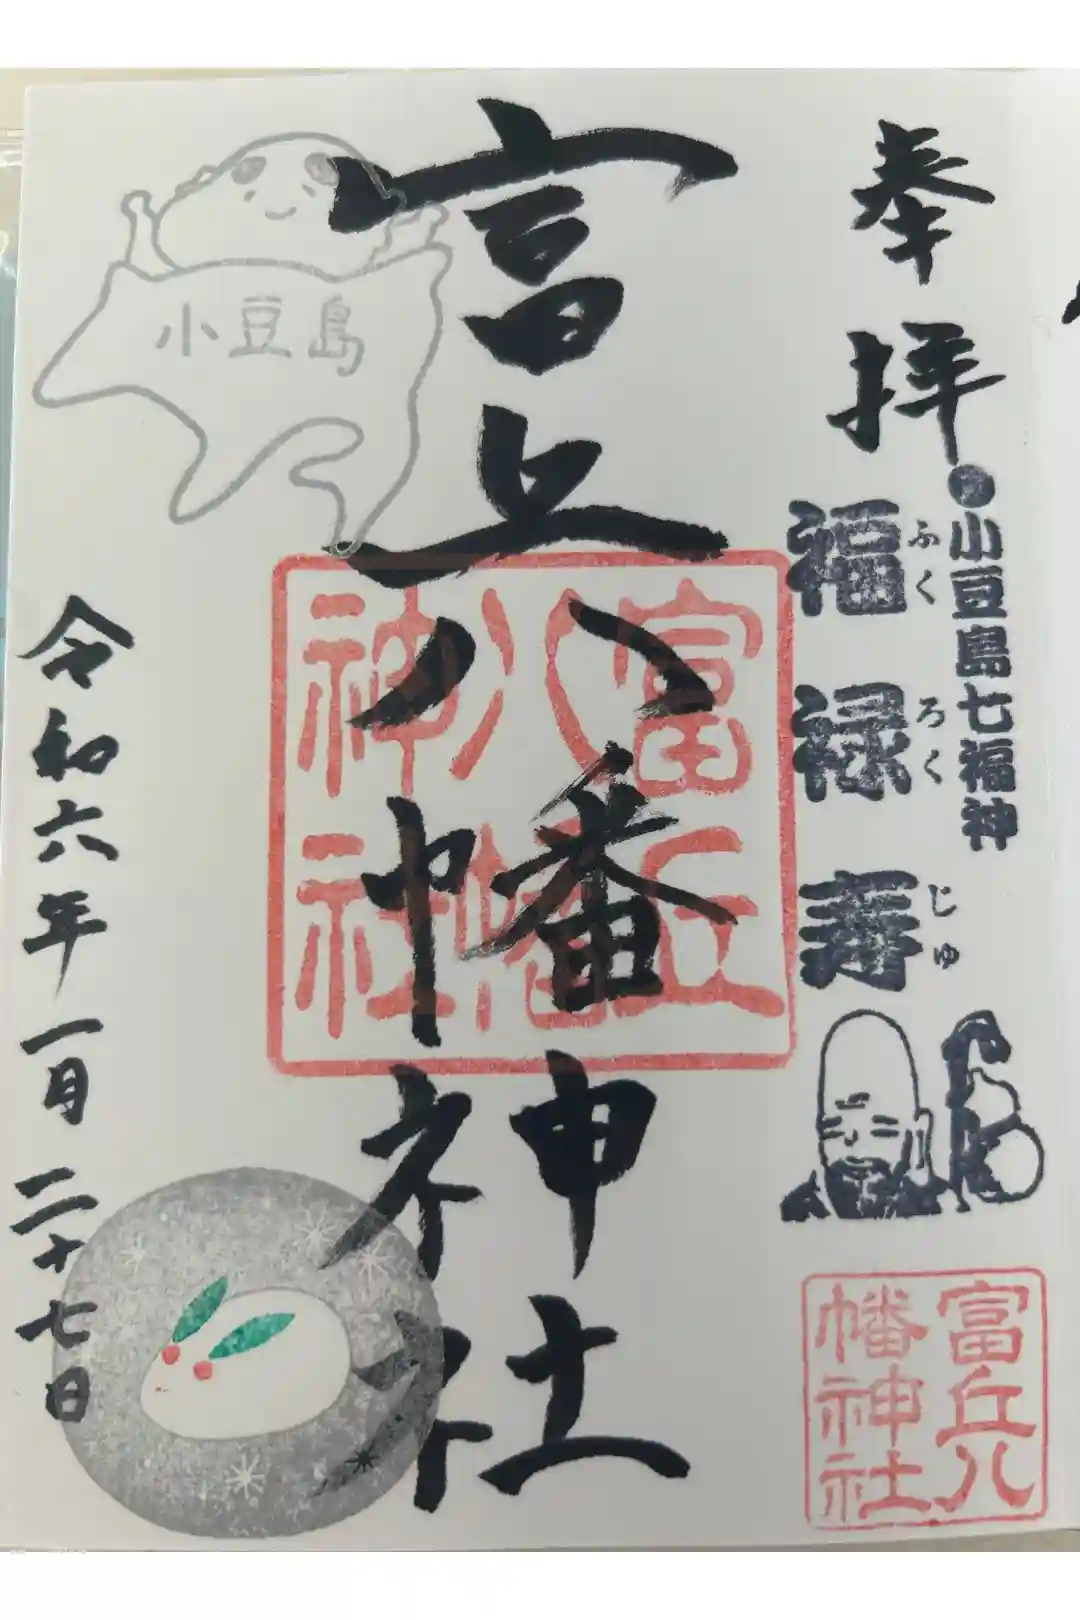 奉拝
●小豆島七福神
ふくろくじゅ
福禄寿
富丘八
幡神社
富丘八幡神社
富丘
八幡
神社
小豆島
令和六年一月二十七日